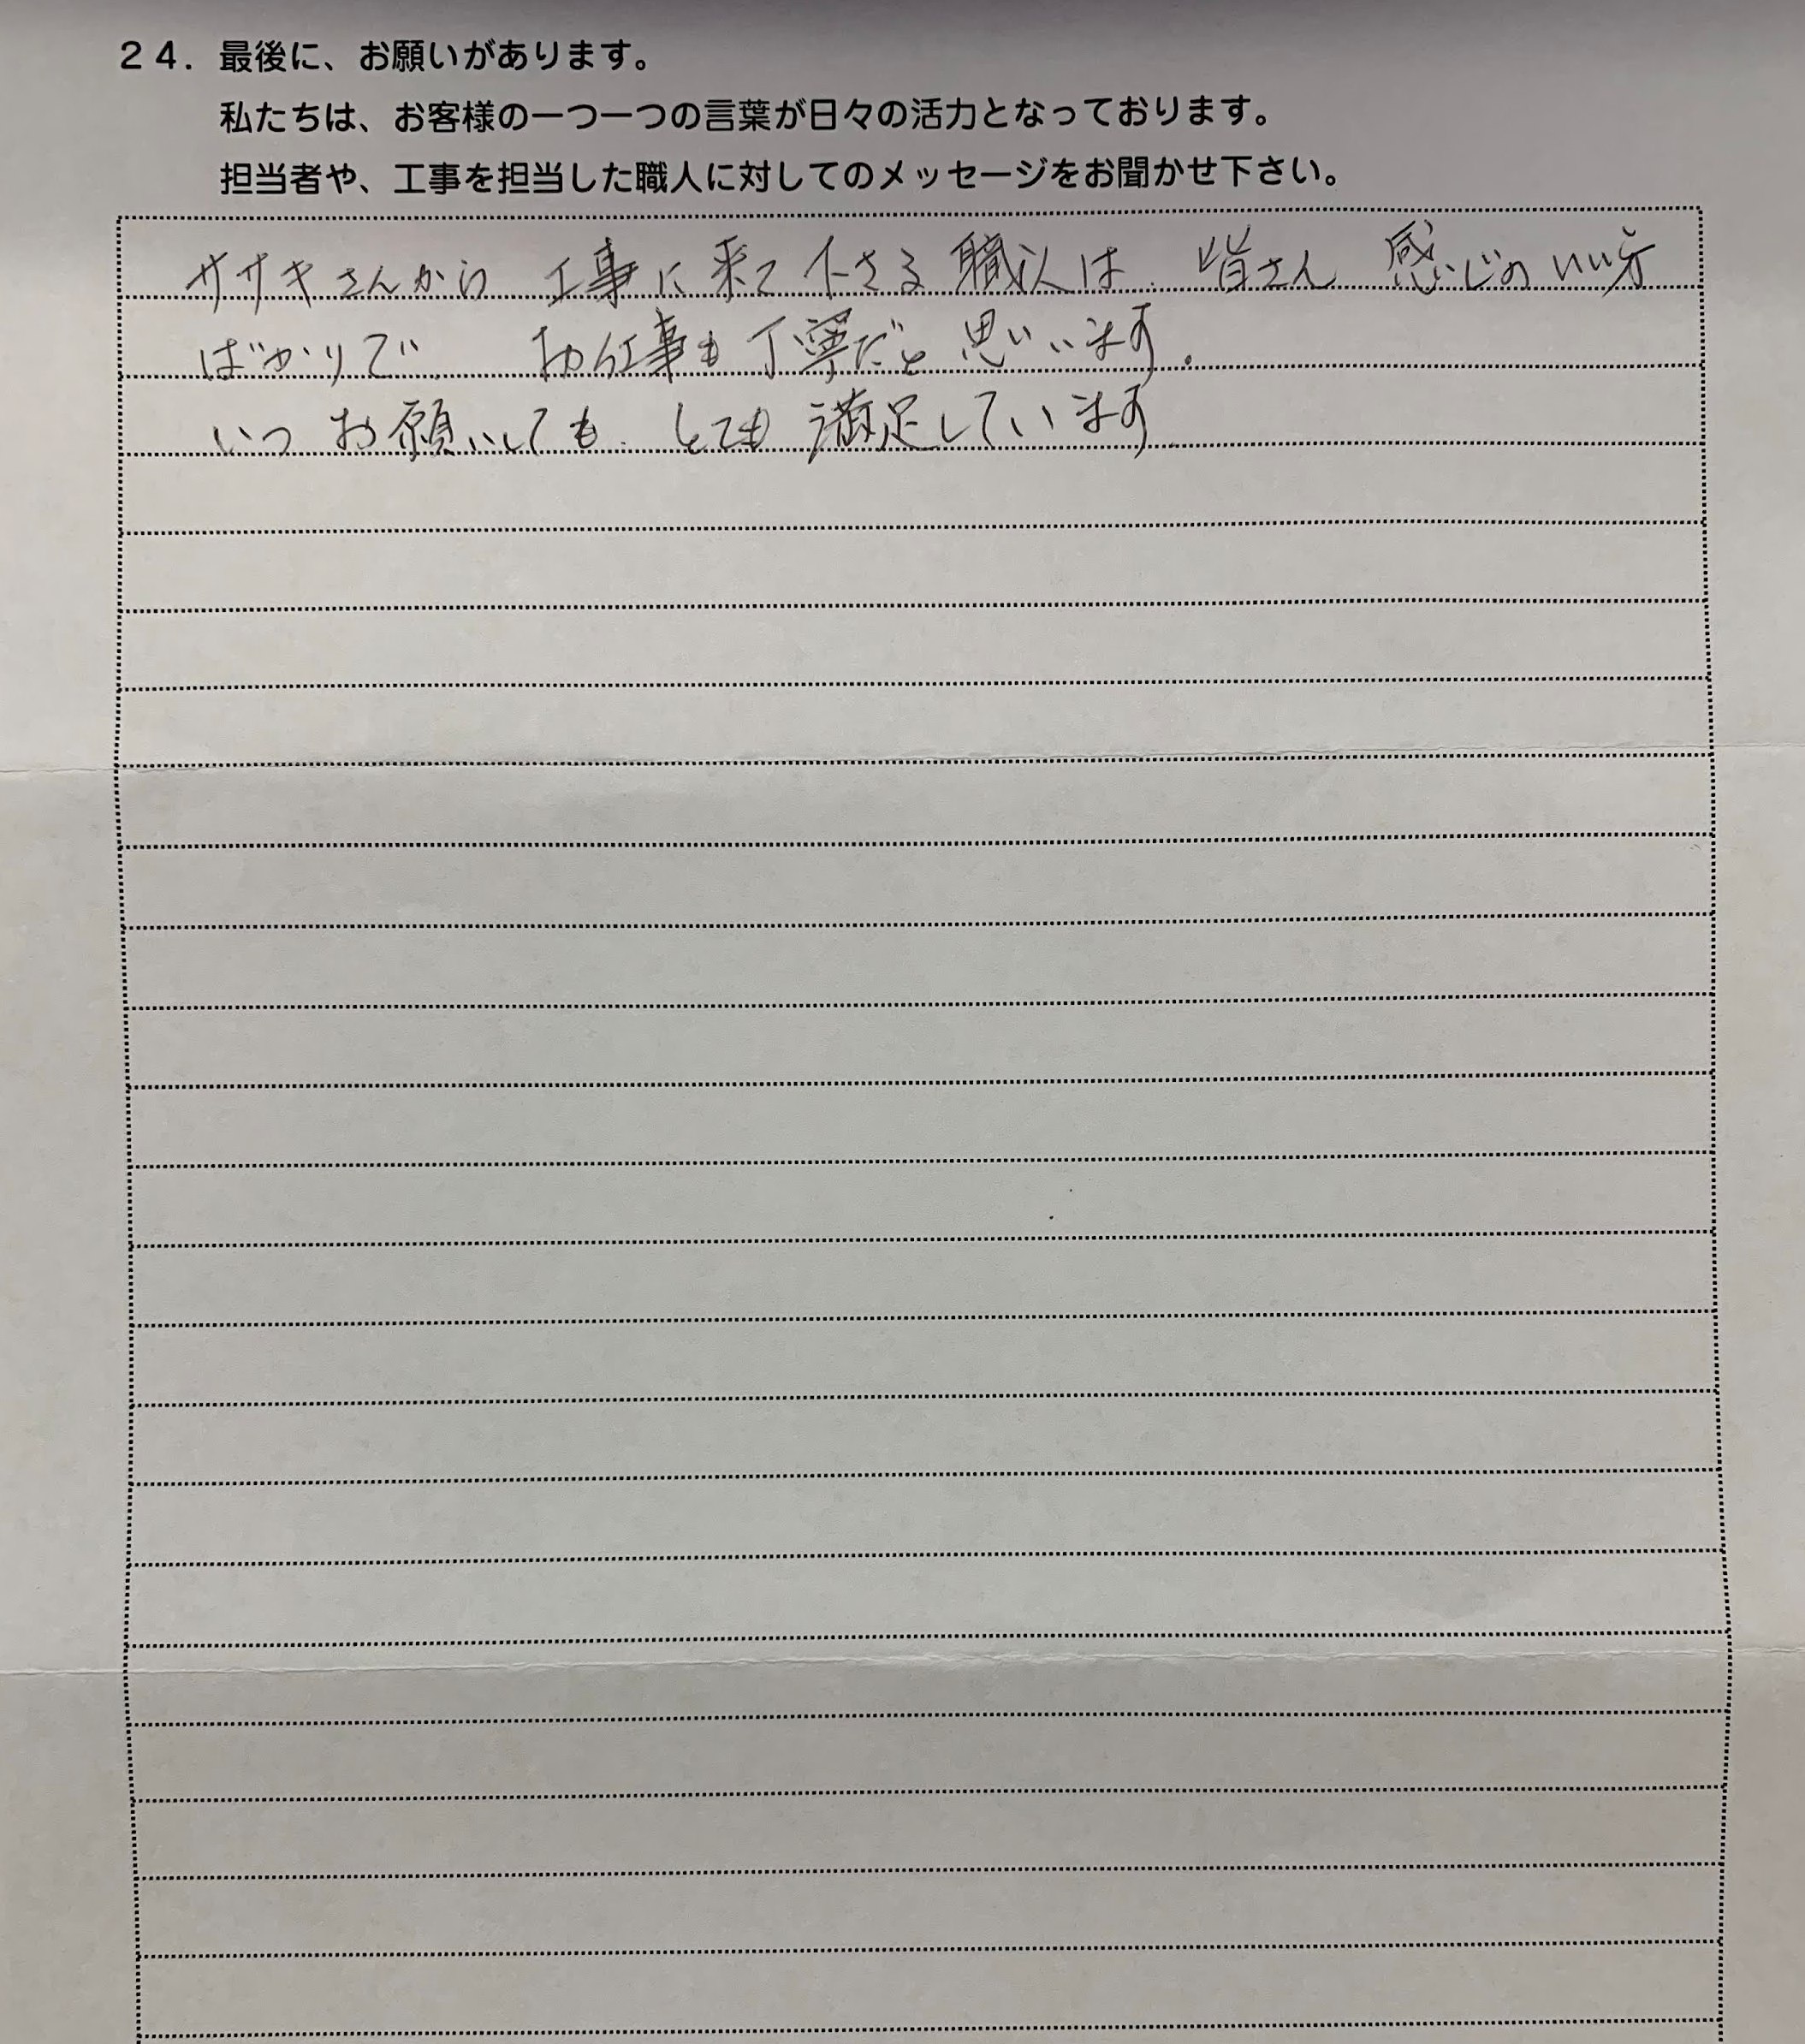 ２４．最後に、お願いがあります。
私たちは、お客様の一つ一つの言葉が日々の活力となっております。
担当者や、工事を担当した職人に対してのメッセージをお聞かせ下さい。
ササキさんから 工事に来て下さる職人は、皆さん 感じのいい方
ばかりで、 お仕事も丁寧だと思います。
いつお願いしても、とても満足しています